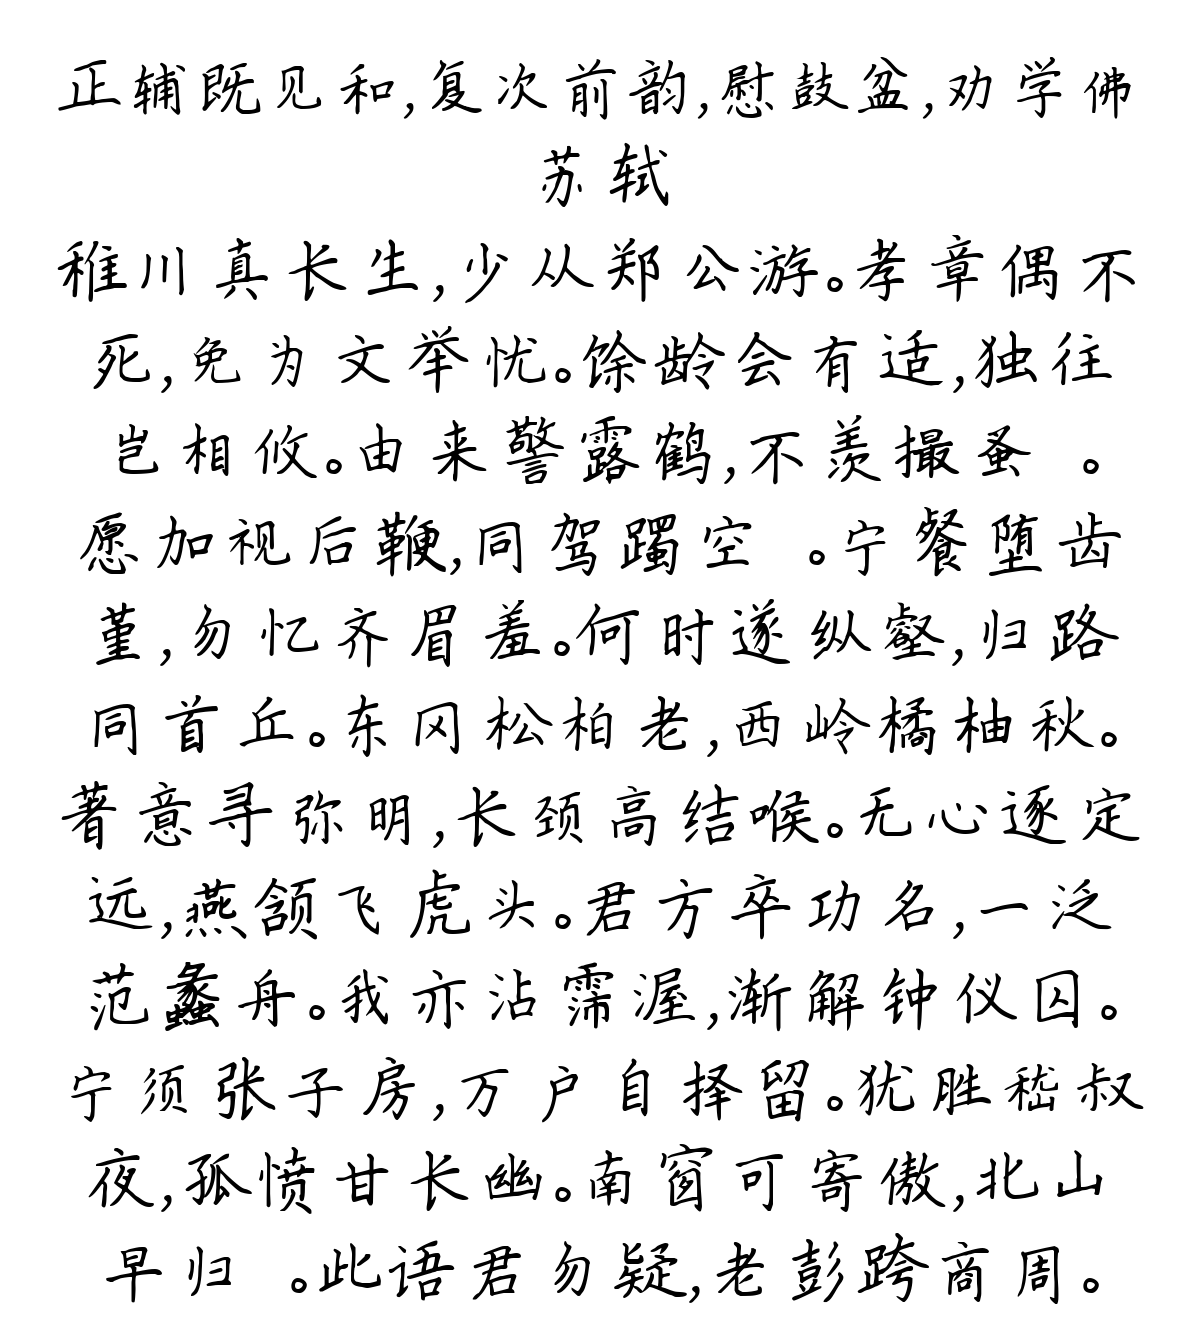 正辅既见和,复次前韵,慰鼓盆,劝学佛
苏轼
稚川真长生,少从郑公游。孝章偶不
死,免为文举忧。馀龄会有适,独往
岂相攸。由来警露鹤,不羡撮蚤 。
愿加视后鞭,同驾躅空 。宁餐堕齿
堇,勿忆齐眉羞。何时遂纵壑,归路
同首丘。东冈松柏老,西岭橘柚秋。
著意寻弥明,长颈高结喉。无心逐定
远,燕颔飞虎头。君方卒功名,一泛
范蠡舟。我亦沾霈渥,渐解钟仪囚。
宁须张子房,万户自择留。犹胜嵇叔
夜,孤愤甘长幽。南窗可寄傲,北山
早归 。此语君勿疑,老彭跨商周。